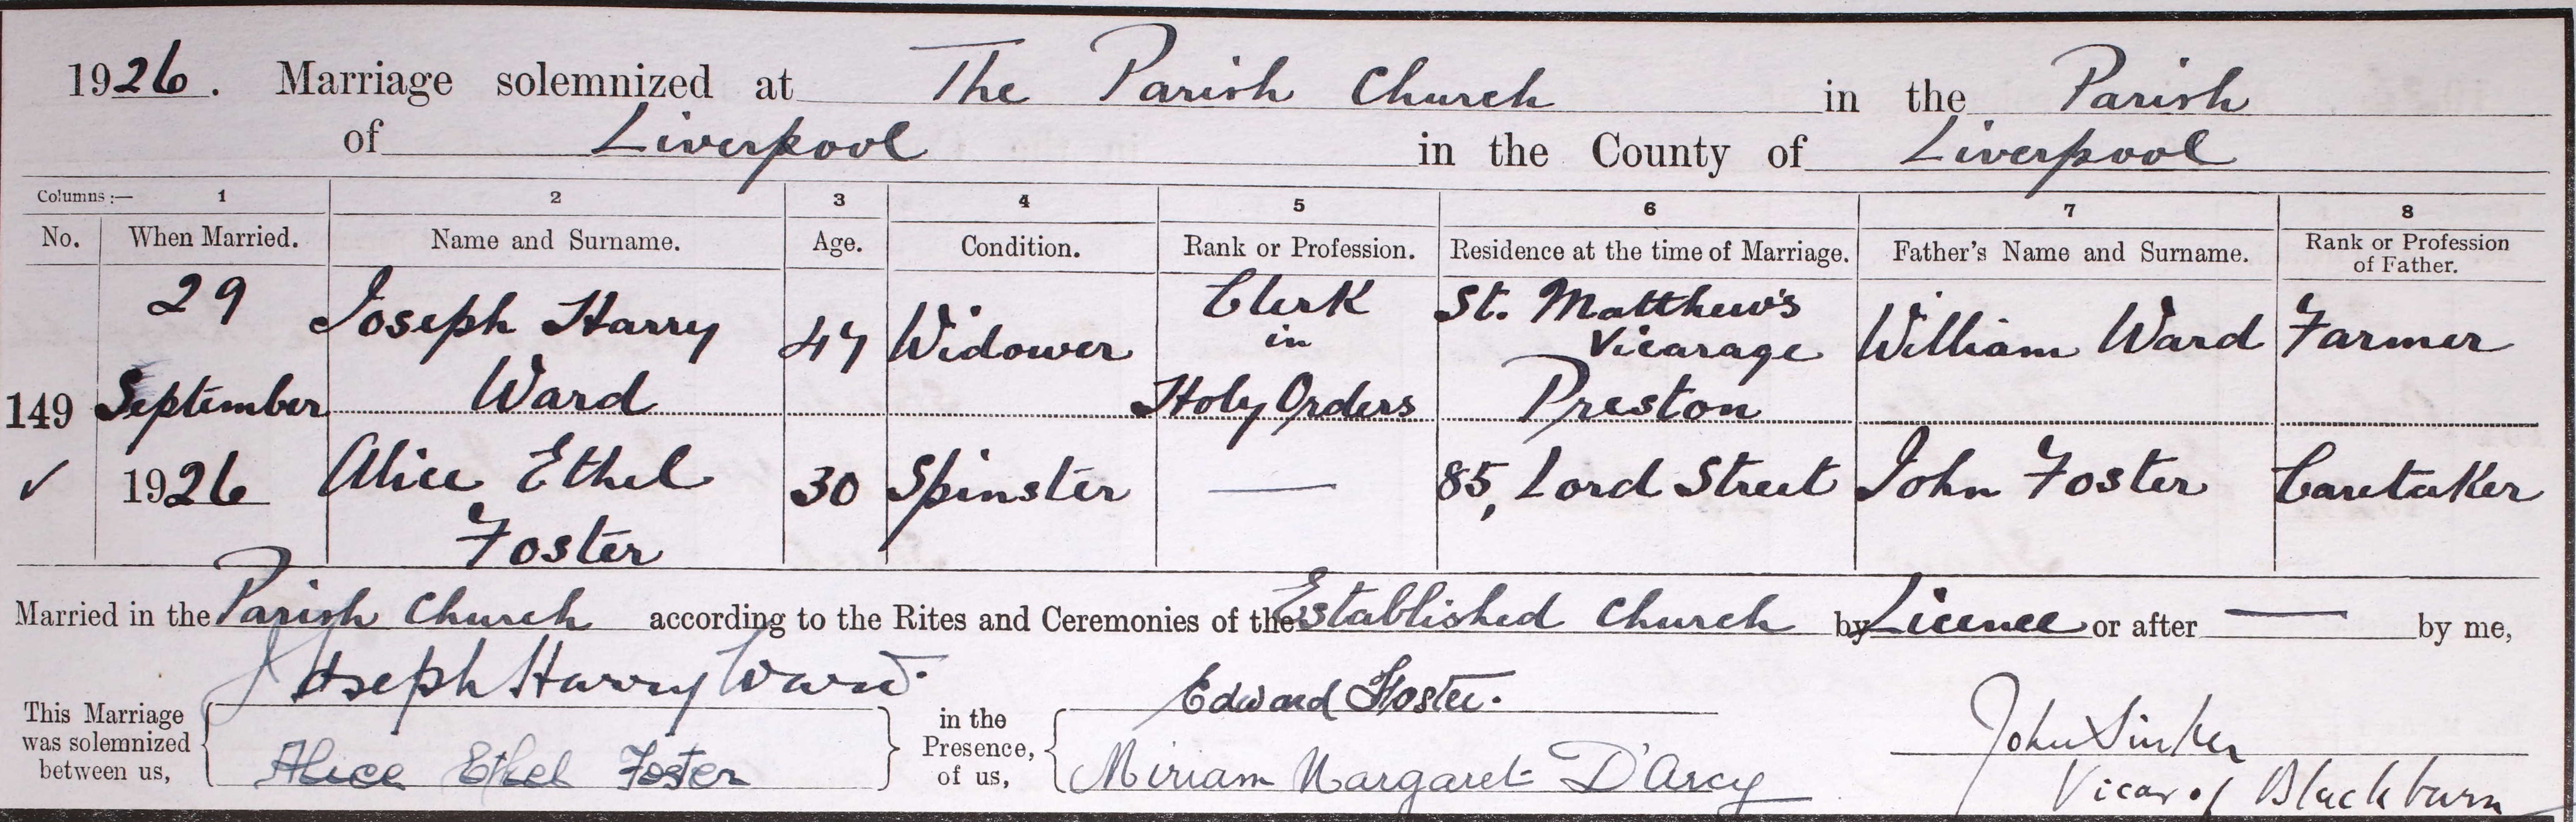 1926. Marriage solemnized at The Parish Church in the Parish
of Liverpool in the County of Liverpool
Columns :— 1 2 3 4 5 6 7 8
No. When Married. Name and Surname. Age. Condition. Rank or Profession. Residence at the time of Marriage. Father's Name and Surname. Rank or Profession of Father.
149 29 September 1926
Joseph Harry Ward 47 Widower Clerk in Holy Orders St. Matthew's Vicarage Preston William Ward Farmer
✓ Alice Ethel Foster 30 Spinster — 85, Lord Street John Foster Caretaker
Married in the Parish Church according to the Rites and Ceremonies of the Established Church by Licence or after — by me,
This Marriage was solemnized between us,
Joseph Harry Ward.
Alice Ethel Foster
in the Presence, of us,
Edward Foster.
Miriam Margaret D'Arcy
John Sinker
Vicar of Blackburn